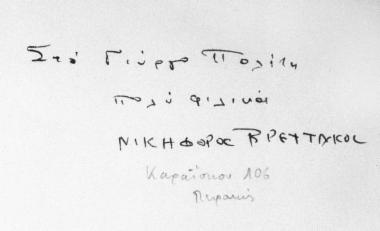 Στό Γιῶργο Πολίτη
πολύ φιλικά
ΝΙΚΗΦΟΡΟΣ ΒΡΕΤΤΑΚΟΣ
Καραΐσκου 106
Πειραιάς